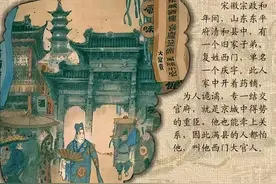 宋徽宗政和
年间，山东东平
府清河县中，有
一个旧家子弟，
复姓西门，单名
一个庆字，此人
家中开着药铺，
为人诡谲，专一结交
官府，就是京城中得势
的重臣，他也能牵上关
系，因此满县的人都怕
他，叫他西门大官人。